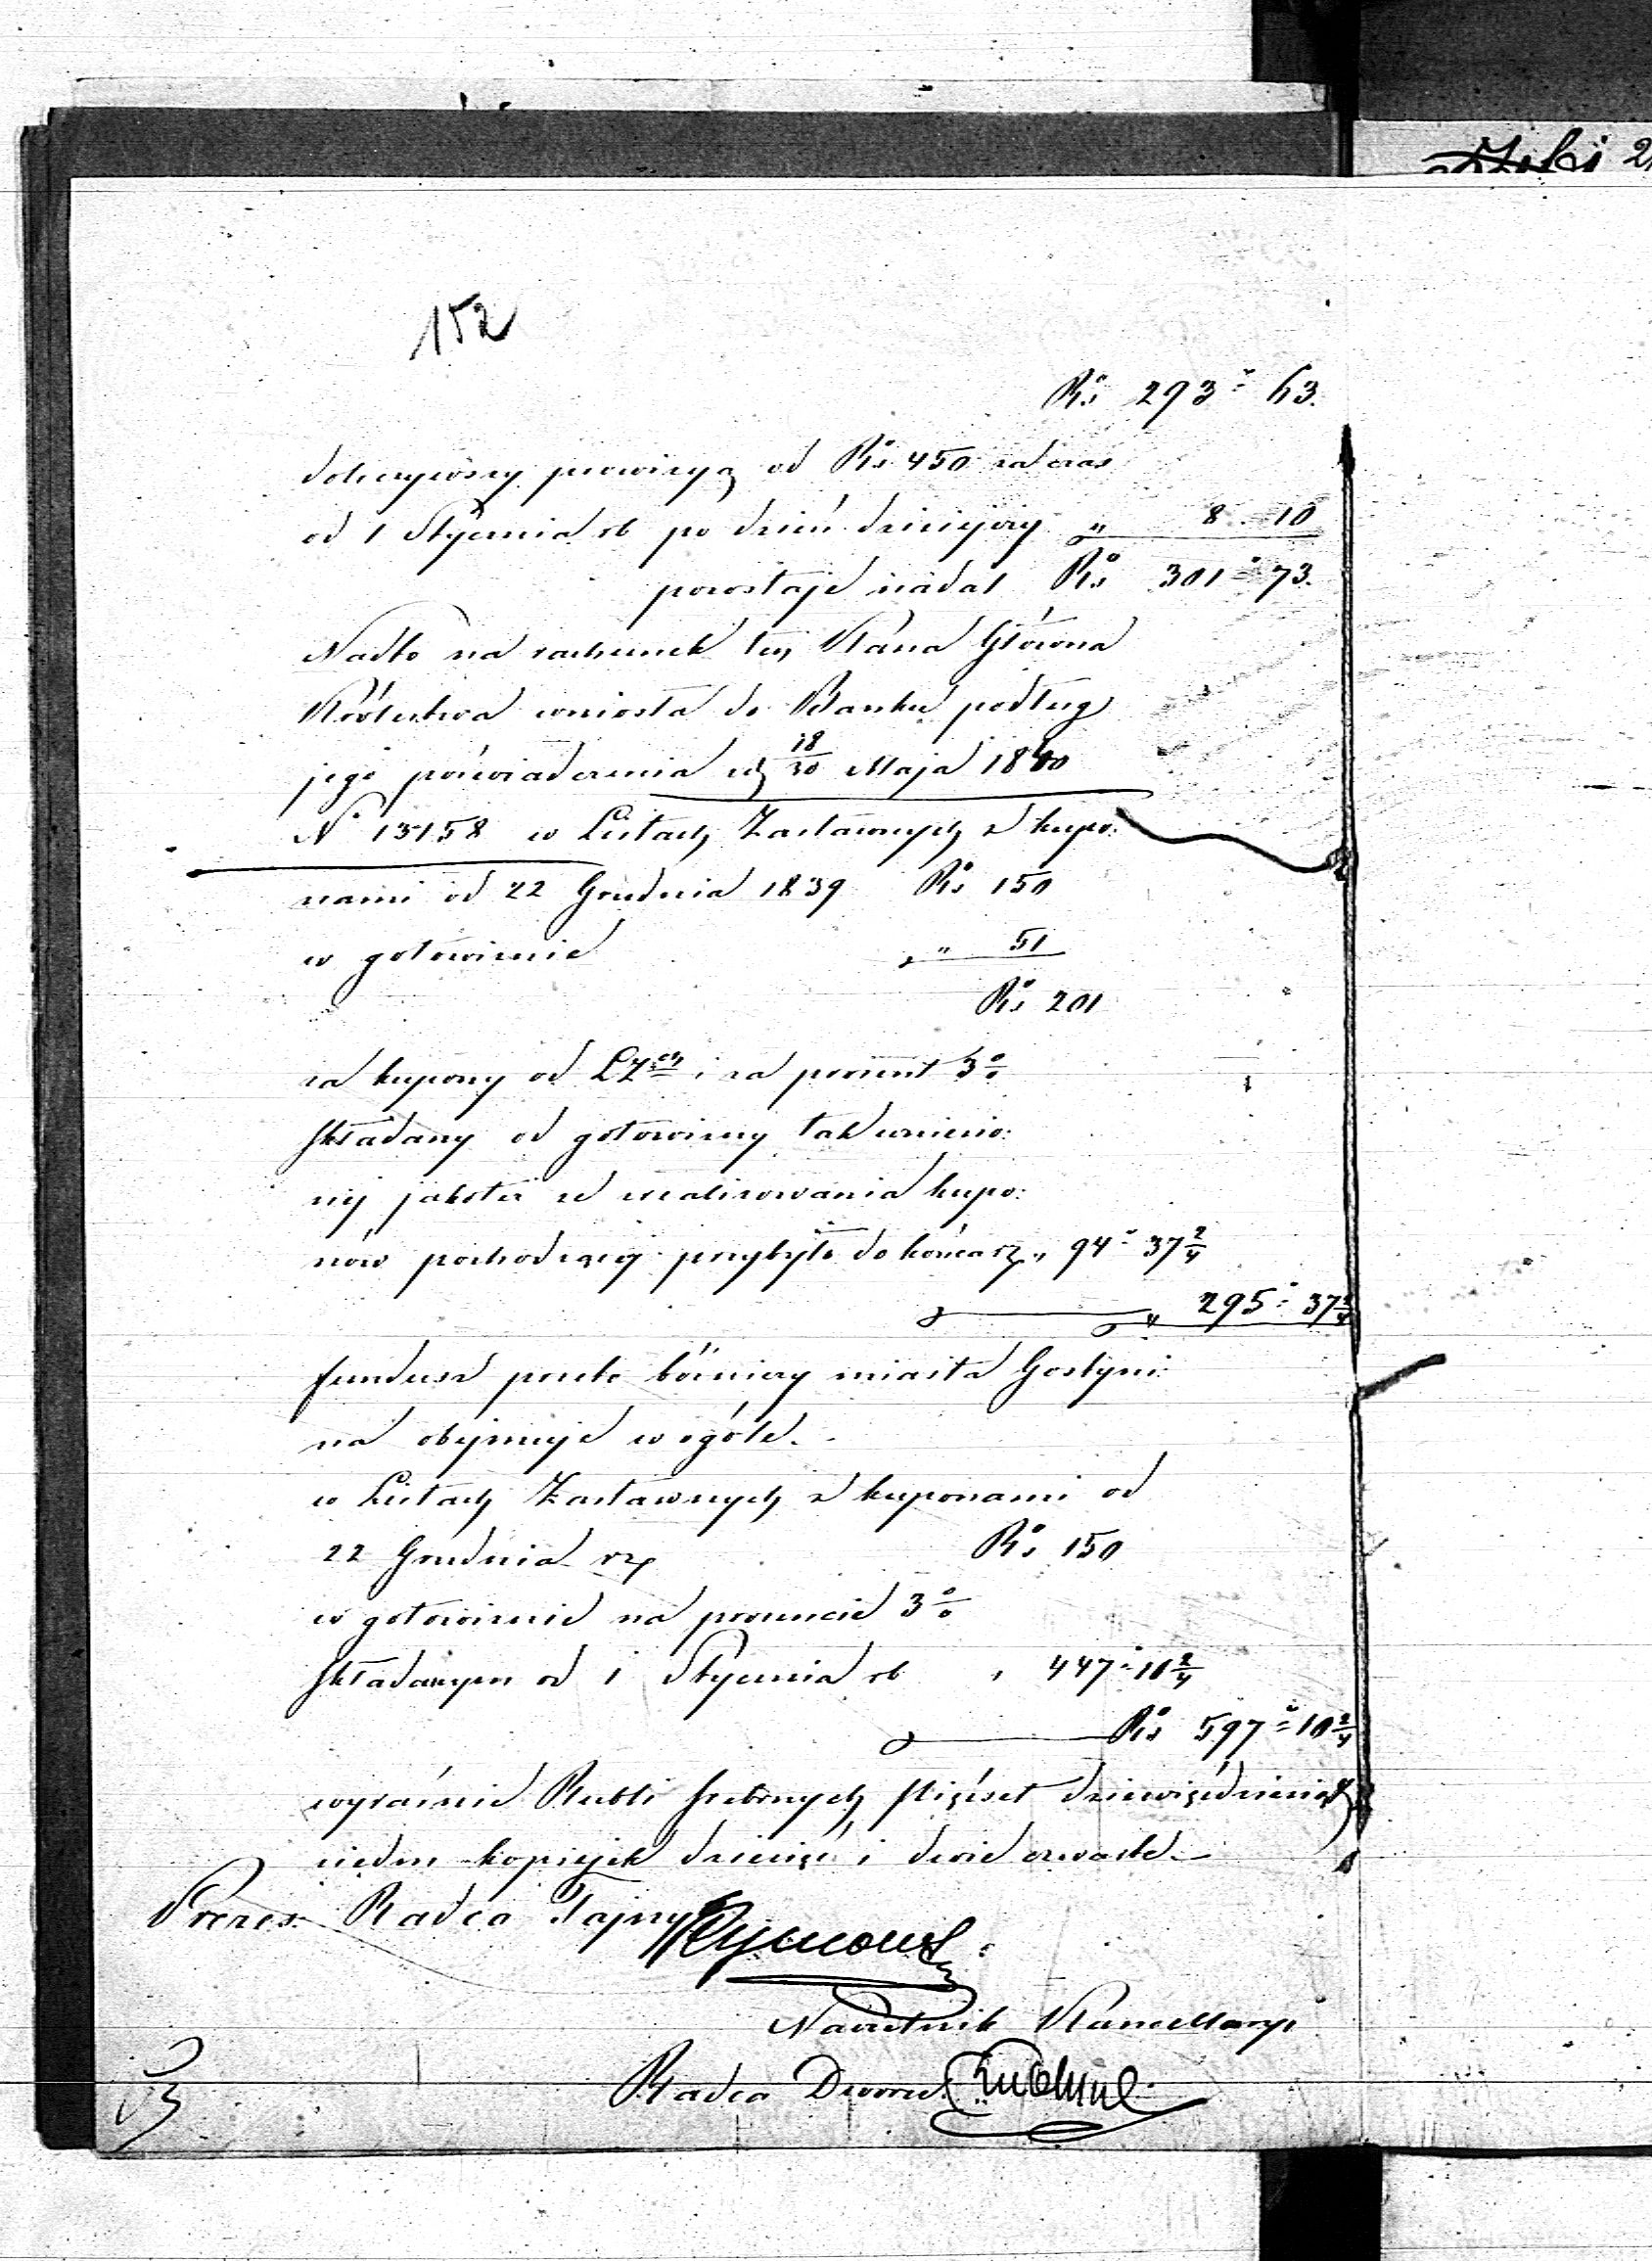 152
Rs 293 = 63.
doliczywszy prowizyą od Rs 450 za czas
od 1 Stycznia rb po dzień dzisiejszy „ 8 = 10
pozostaje nadal Rs 301 = 73.
Nadto na rachunek ten Kassa Główna
Królestwa wniosła do Banku podług
jego poświadczenia z d 18/30 Maja 1840
N° 13158 w Listach Zastawnych z kupo:
nami od 22 Grudnia 1839 Rs 150
w gotowiznie „ 51
Rs 201
za kupony od LZch i za procent 3%
składany od gotowizny tak wniesio:
nej jakoteż ze zrealizowania kupo:
nów pochodzącej przybyło do końca rz „ 94 = 37 2/4
„ 295 = 37 2/4
fundusz przeto bóżniczy miasta Gostyni:
na obejmuje w ogóle.
w Listach Zastawnych z kuponami od
22 Grudnia rz Rs 150
w gotowiznie na procencie 3%
składanym od 1 Stycznia rb „ 447 = 10 2/4
Rs 597 = 10 2/4
wyraźnie Rubli srebrnych pięćset dziewięćdziesiąt
siedm kopiejek dziesięć i dwie czwarte.
Prezes Radca Tajny
Naczelnik Kancellaryi
Radca Dworu